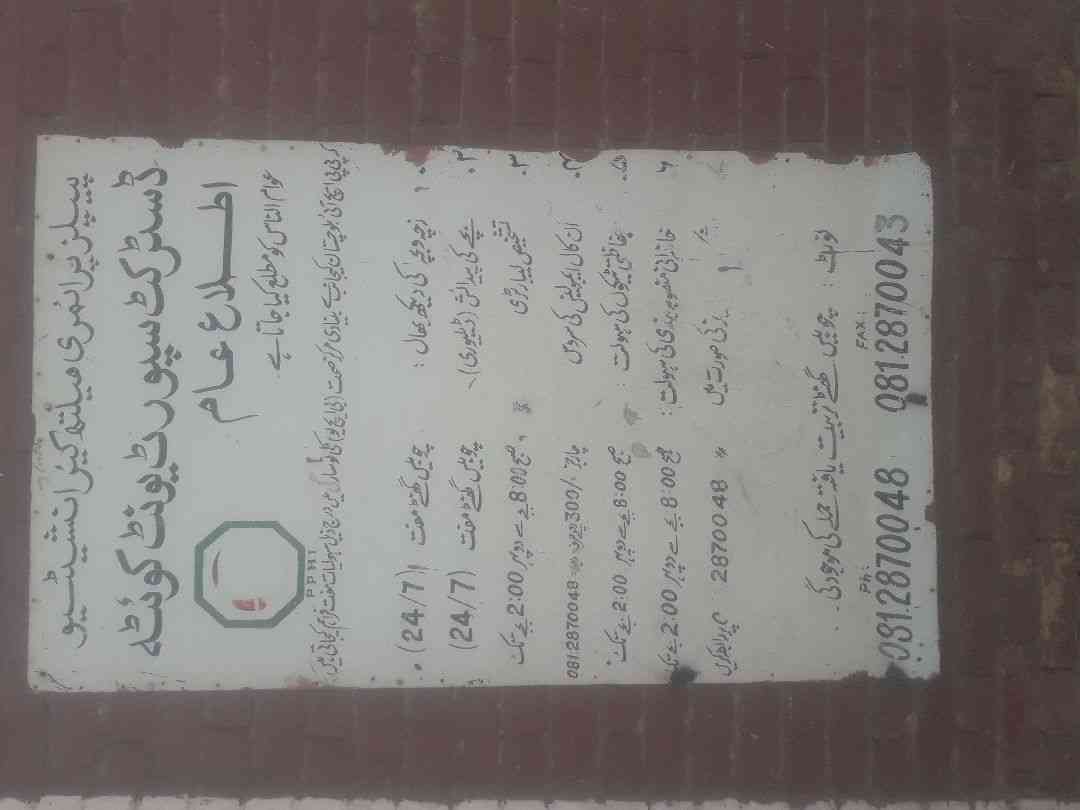 پیپلز پرائمری ہیلتھ کیئر انیشیٹیو
ڈسٹرکٹ سپورٹ یونٹ کوئٹہ
اطلاع عام
PPHI
عوام الناس کو مطلع کیا جاتا ہے
کہ پی پی ایچ آئی بلوچستان کیجانب سے بنیادی مرکز صحت (بی ایچ یو) میں درج ذیل سہولیات مفت فراہم کیجاتی ہیں
۱۔ زچہ و بچہ کی دیکھ بھال : چوبیس گھنٹے مفت (24/7)
۲۔ بچے کی پیدائش (ڈیلیوری) چوبیس گھنٹے مفت (24/7)
۳۔ تشخیص لیبارٹری صبح 8:00 بجے سے دوپہر 2:00 بجے تک
۴۔ آن کال ایمبولینس کی سروس چارجز /300 روپے 0812870048
۵۔ حفاظتی ٹیکوں کی سہولت : صبح 8:00 بجے سے دوپہر 2:00 بجے تک
۶ خاندانی منصوبہ بندی کی سہولت : صبح 8:00 بجے سے دوپہر 2:00 بجے تک
کی صورت میں 2870048 پر رابطہ کریں
نوٹ : چوبیس گھنٹے تربیت یافتہ عملے کی موجودگی۔
Ph: 0812870048 FAX: 0812870043